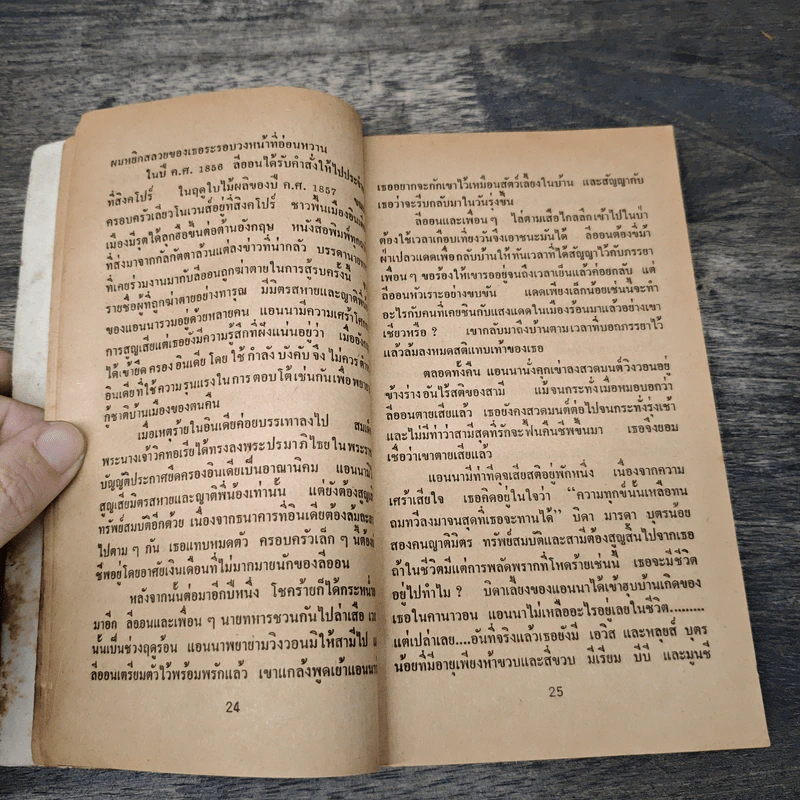 ผมหยิกสลวยของเธอระรอบวงหน้าที่อ่อนหวาน
ในปี ค.ศ. 1856 ลีออนได้รับคำสั่งให้ไปประจำ
ที่สิงคโปร์ ในฤดูใบไม้ผลิของปี ค.ศ. 1857
ครอบครัวเลียวโนเวนส์อยู่ที่สิงคโปร์ ชาวพื้นเมืองอินเดีย
เมืองมีรุตได้ลุกฮือขึ้นต่อต้านอังกฤษ หนังสือพิมพ์ทุกฉ
ที่ส่งมาจากกัลกัตตาล้วนแต่ลงข่าวที่น่ากลัว บรรดานายท
ที่เคยร่วมงานมากับลีออนถูกฆ่าตายในการสู้รบครั้งนี้
รายชื่อผู้ที่ถูกฆ่าตายอย่างทารุณ มีมิตรสหายและญาติพี่น้
ของแอนนารวมอยู่ด้วยหลายคน แอนนามีความเศร้าโศก
การสูญเสียแต่เธอยังมีความรู้สึกที่ฝังแน่นอยู่ว่า เมื่ออังก
ได้เข้ายึดครองอินเดียโดยใช้กำลังบังคับจึงไม่ควรตำ
อินเดียที่ใช้ความรุนแรงในการตอบโต้เช่นกันเพื่อพยาย
กู้ชาติบ้านเมืองของตนคืน
เมื่อเหตุร้ายในอินเดียค่อยบรรเทาลงไป สมเด็
พระนางเจ้าวิคทอเรียได้ทรงลงพระปรมาภิไธยในพระรา
บัญญัติประกาศยึดครองอินเดียเป็นอาณานิคม แอนนามิ
สูญเสียมิตรสหายและญาติพี่น้องเท่านั้น แต่ยังต้องสูญเ
ทรัพย์สมบัติอีกด้วย เนื่องจากธนาคารที่อินเดียต้องล้มละล
ไปตาม ๆ กัน เธอแทบหมดตัว ครอบครัวเล็ก ๆ นี้ต้องยั
ชีพอยู่โดยอาศัยเงินเดือนที่ไม่มากมายนักของลีออน
หลังจากนั้นต่อมาอีกปีหนึ่ง โชคร้ายก็ได้กระหน่ำ
มาอีก ลีออนและเพื่อน ๆ นายทหารชวนกันไปล่าเสือ เว
นั้นเป็นช่วงฤดูร้อน แอนนาพยายามวิงวอนมิให้สามีไป แ
ลีออนเตรียมตัวไว้พร้อมพรักแล้ว เขาแกล้งพูดเย้าแอนนา
24
เธออยากจะกักเขาไว้เหมือนสัตว์เลี้ยงในบ้าน และสัญญากับ
เธอว่าจะรีบกลับมาในวันรุ่งขึ้น
ลีออนและเพื่อน ๆ ไล่ตามเสือไกลลึกเข้าไปในป่า
ต้องใช้เวลาเกือบเที่ยงวันจึงเอาชนะมันได้ ลีออนต้องขี่ม้า
ฝ่าเปลวแดดเพื่อกลับบ้านให้ทันเวลาที่ได้สัญญาไว้กับภรรยา
เพื่อน ๆ ขอร้องให้เขารออยู่จนถึงเวลาเย็นแล้วค่อยกลับ แต่
ลีออนหัวเราะอย่างขบขัน แดดเพียงเล็กน้อยเช่นนี้จะทำ
อะไรกับคนที่เคยชินกับแสงแดดในเมืองร้อนมาแล้วอย่างเขา
เชียวหรือ ? เขากลับมาถึงบ้านตามเวลาที่บอกภรรยาไว้
แล้วล้มลงหมดสติแทบเท้าของเธอ
ตลอดทั้งคืน แอนนานั่งคุกเข่าลงสวดมนต์วิงวอนอยู่
ข้างร่างอันไร้สติของสามี แม้จนกระทั่งเมื่อหมอบอกว่า
ลีออนตายเสียแล้ว เธอยังคงสวดมนต์ต่อไปจนกระทั่งรุ่งเช้า
และไม่มีท่าว่าสามีสุดที่รักจะฟื้นคืนชีพขึ้นมา เธอจึงยอม
เชื่อว่าเขาตายเสียแล้ว
แอนนามีท่าทีดุจเสียสติอยู่พักหนึ่ง เนื่องจากความ
เศร้าเสียใจ เธอคิดอยู่ในใจว่า “ความทุกข์นั้นเหลือทน
ถมทวีลงมาจนสุดที่เธอจะทานได้” บิดา มารดา บุตรน้อย
สองคนญาติมิตร ทรัพย์สมบัติและสามีต้องสูญสิ้นไปจากเธอ
ถ้าในชีวิตมีแต่การพลัดพรากที่โหดร้ายเช่นนี้ เธอจะมีชีวิต
อยู่ไปทำไม ? บิดาเลี้ยงของแอนนาได้เข้าฮุบบ้านเกิดของ
เธอในคานาวอน แอนนาไม่เหลืออะไรอยู่เลยในชีวิต.........
แต่เปล่าเลย....อันที่จริงแล้วเธอยังมี เอวิส และหลุยส์ บุตร
น้อยที่มีอายุเพียงห้าขวบและสี่ขวบ มีเรียม บีบี และมูนชี
25